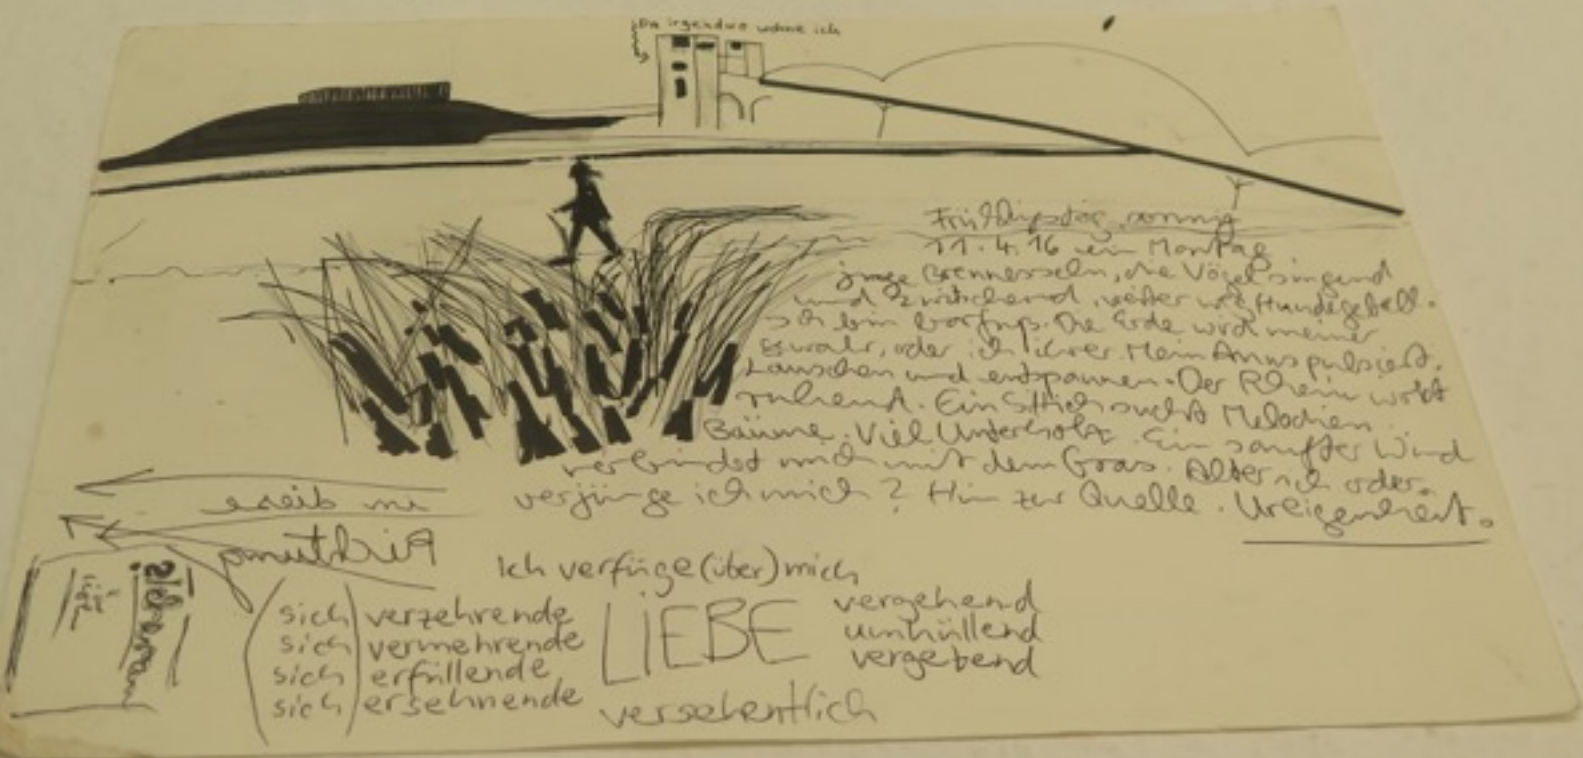 Da irgendwo wohne ich
Frühlingstag, sonnig
11.4.16 ein Montag
junge Brennesseln, die Vögel singend
und zwitschernd, weiter weg Hundegebell.
Ich bin barfuß. Die Erde wird meiner
gewahr, oder ich ihrer. Mein Anus pulsiert.
Lauschen und entspannen. Der Rhein wirkt
ruhend. Ein Sittich sucht Melodien.
Bäume. Viel Unterholz. Ein sanfter Wind
verbindet mich mit dem Gras. Alter ich oder
verjünge ich mich? Hin zur Quelle. Ureigenheit.
in diese
Richtung
Ich verfüge (über) mich
sich verzehrende
sich vermehrende
sich erfüllende
sich ersehnende
LIEBE
vergehend
umhüllend
vergebend
versehentlich